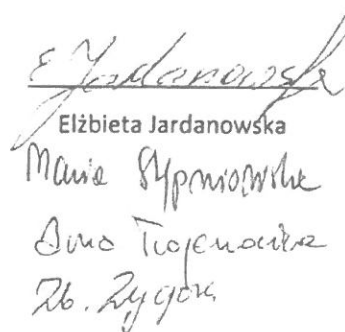 E Jardanowska
Elżbieta Jardanowska
Maria Stypniowska
Anna Trojanowicz
Zb. Zygora